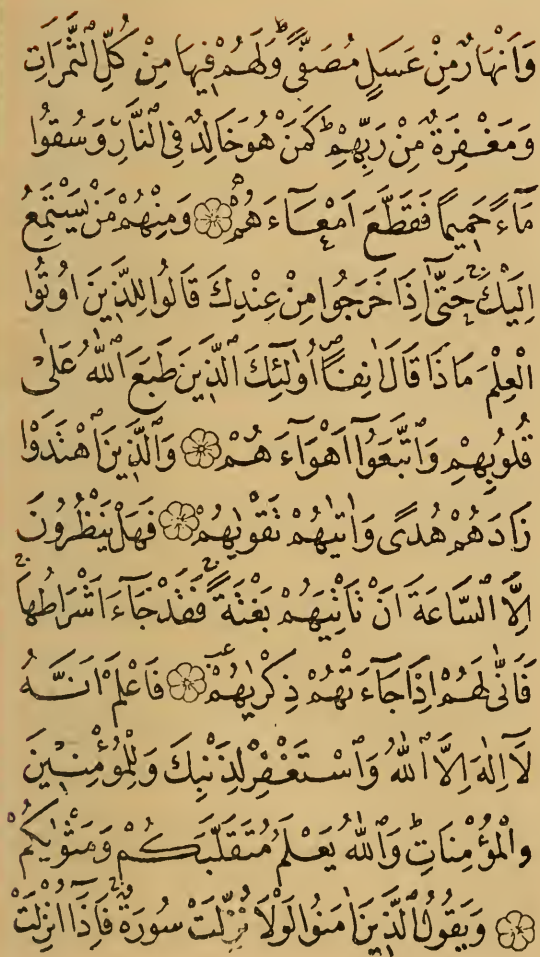 وَاَنْهَارٌ مِنْ عَسَلٍ مُصَفًّىۜ وَلَهُمْ فٖيهَا مِنْ كُلِّ الثَّمَرَاتِ
وَمَغْفِرَةٌ مِنْ رَبِّهِمْۜ كَمَنْ هُوَ خَالِدٌ فِي النَّارِ وَسُقُوا
مَآءً حَمٖيمًا فَقَطَّعَ اَمْعَآءَهُمْ ۝ وَمِنْهُمْ مَنْ يَسْتَمِعُ
اِلَيْكَۚ حَتّٰٓى اِذَا خَرَجُوا مِنْ عِنْدِكَ قَالُوا لِلَّذٖينَ اُوتُوا
الْعِلْمَ مَاذَا قَالَ اٰنِفًا اُولٰٓئِكَ الَّذٖينَ طَبَعَ اللّٰهُ عَلٰى
قُلُوبِهِمْ وَاتَّبَعُٓوا اَهْوَآءَهُمْ ۝ وَالَّذٖينَ اهْتَدَوْا
زَادَهُمْ هُدًى وَاٰتٰيهُمْ تَقْوٰيهُمْ ۝ فَهَلْ يَنْظُرُونَ
اِلَّا السَّاعَةَ اَنْ تَاْتِيَهُمْ بَغْتَةًۚ فَقَدْ جَآءَ اَشْرَاطُهَاۚ
فَاَنّٰى لَهُمْ اِذَا جَآءَتْهُمْ ذِكْرٰيهُمْ ۝ فَاعْلَمْ اَنَّهُ
لَٓا اِلٰهَ اِلَّا اللّٰهُ وَاسْتَغْفِرْ لِذَنْبِكَ وَلِلْمُؤْمِنٖينَ
وَالْمُؤْمِنَاتِۜ وَاللّٰهُ يَعْلَمُ مُتَقَلَّبَكُمْ وَمَثْوٰيكُمْ
۝ وَيَقُولُ الَّذٖينَ اٰمَنُوا لَوْلَا نُزِّلَتْ سُورَةٌۚ فَاِذَٓا اُنْزِلَتْ